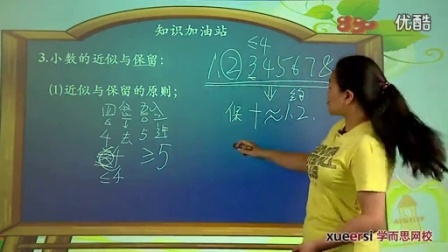 优酷
知识加油站
3.小数的近似与保留:
(1)近似与保留的原则;
四舍五入
4 去 5 进
≤4
≥5
≤4
1.2345678
⇓
保十≈1.2.
xueersi 学而思网校